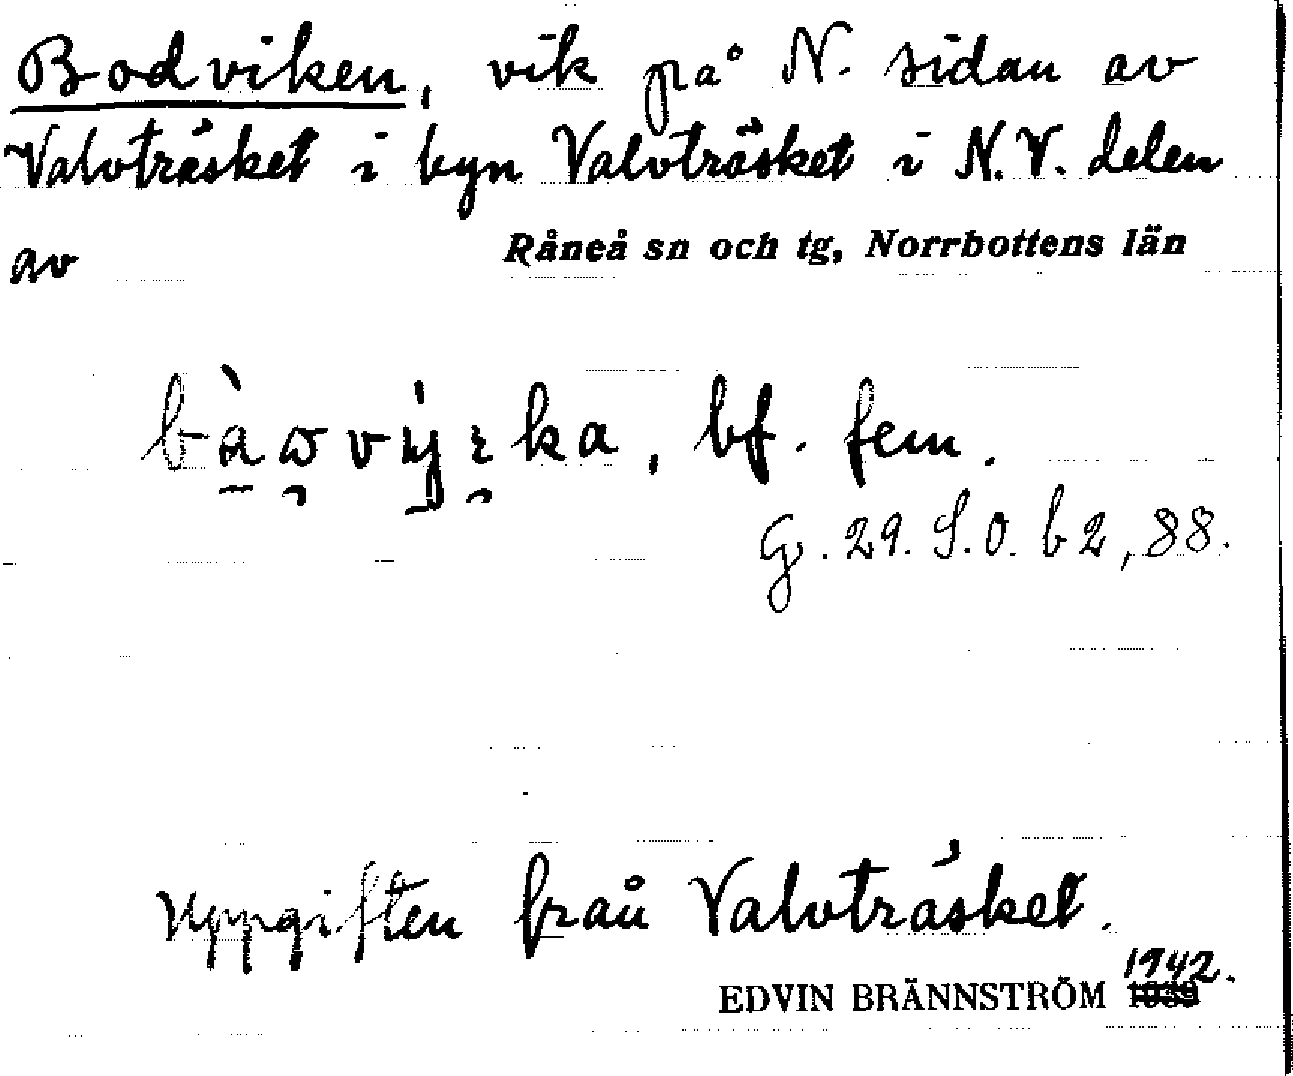 Bodviken, vik på N. sidan av
Valvträsket i byn Valvträsket i N.V. delen
av Råneå sn och tg, Norrbottens län
bf. fem.
G. 29. S.O. b2, 88.
Uppgiften från Valvträsket.
1942.
EDVIN BRÄNNSTRÖM 1939